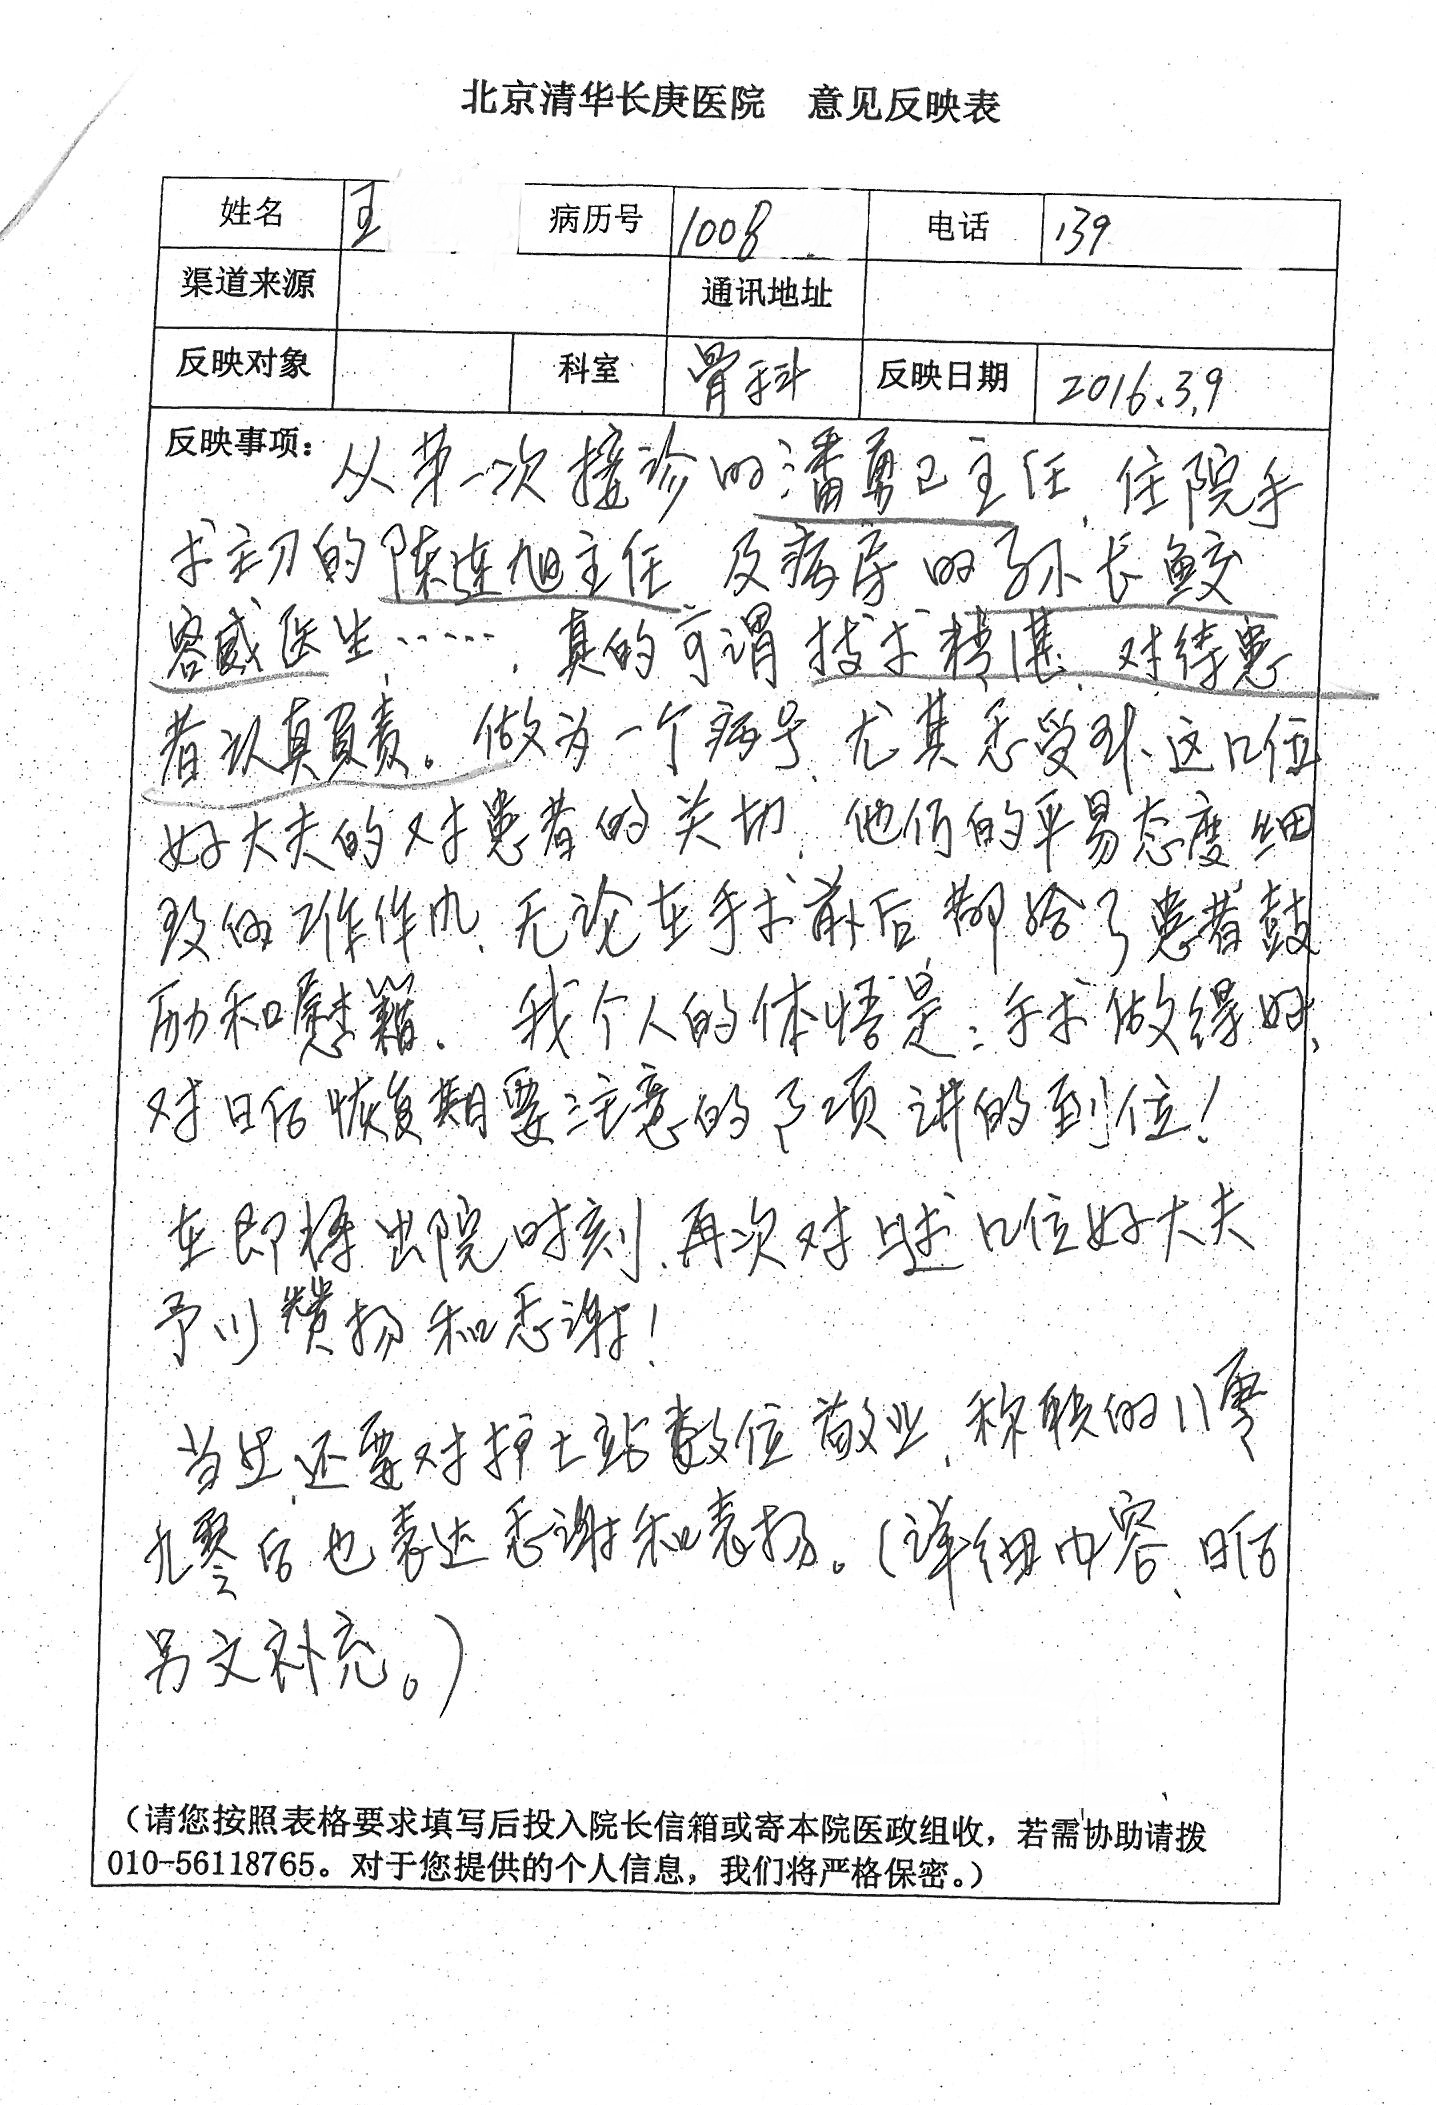 北京清华长庚医院 意见反映表
姓名 王 病历号 1008 电话 139
渠道来源 通讯地址
反映对象 科室 骨科 反映日期 2016.3.9
反映事项：从第一次接诊的潘勇卫主任、住院手
术主刀的陈连旭主任 及病房的孙长鲛
容威医生……，真的可谓技术精湛、对待患
者认真负责。做为一个病号，尤其感受到这几位
好大夫的对患者的关切，他们的平易态度细
致的工作作风，无论在手术前后都给了患者鼓
励和慰藉。我个人的体悟是：手术做得好，
对日后恢复期要注意的事项讲的到位！
在即将出院时刻，再次对上述几位好大夫
予以赞扬和感谢！
当然，还要对护士站数位敬业、称职的八零
九零后也表达感谢和表扬。（详细内容，日后
另文补充。）
（请您按照表格要求填写后投入院长信箱或寄本院医政组收，若需协助请拨
010-56118765。对于您提供的个人信息，我们将严格保密。）